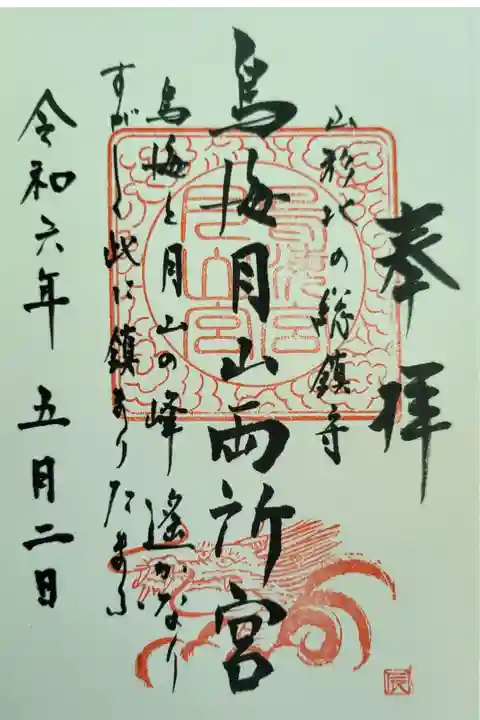 奉拝
山形北の総鎮守
鳥海月山両所宮
鳥海と月山の峰遙かなり
すがしく此に鎮まりたまふ
令和六年 五月二日
辰